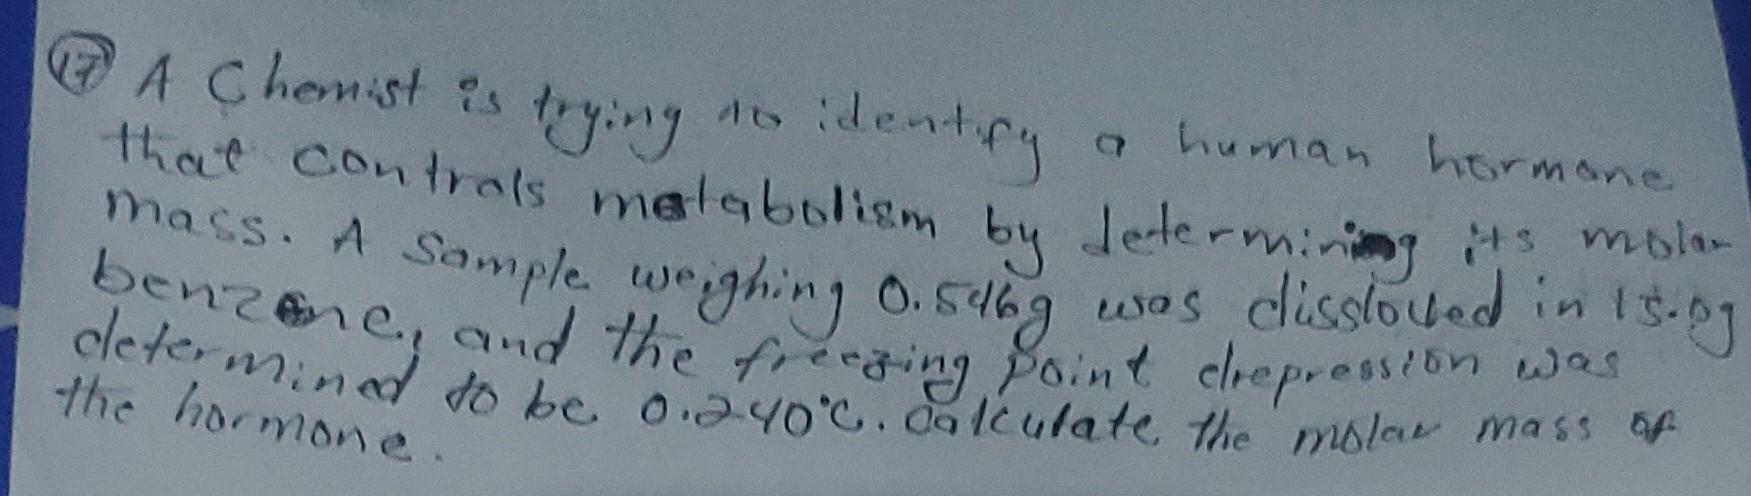 17 A Chemist is trying to identify a human hormone
that controls metabolism by determining its molar
mass. A Sample weighing 0.546g was disslolled in 15.0g
benzene, and the freezing point drepression was
determined to be 0.240°C. Calculate the molar mass of
the hormone.